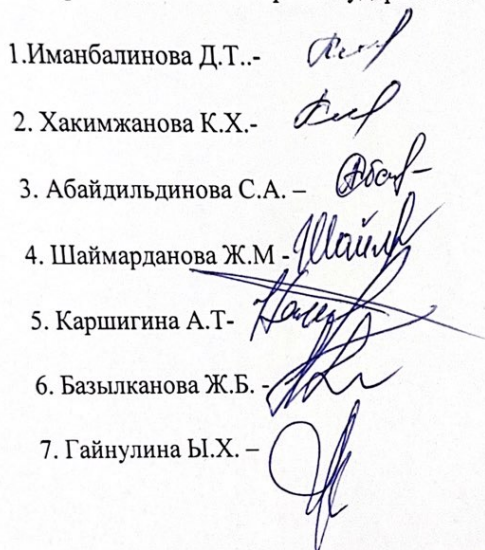 1.Иманбалинова Д.Т..-
2. Хакимжанова К.Х.-
3. Абайдильдинова С.А. –
4. Шаймарданова Ж.М -
5. Каршигина А.Т-
6. Базылканова Ж.Б. -
7. Гайнулина Ы.Х. –